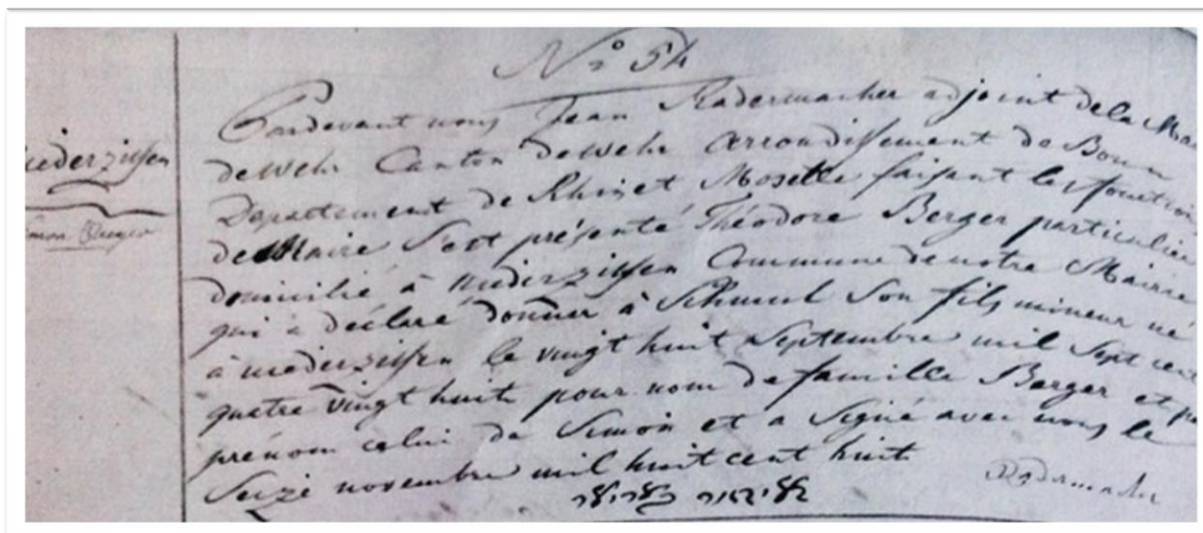 N° 54
Pardevant nous Jean Radermacher adjoint de la Mai
de Wehr Canton de Wehr arrondissement de Bonn
Departement de Rhin et Moselle faisant les fonction
de Maire s'est présenté Théodore Berger particulier
domicilié à niederzissen Commune de notre Mairie
qui a déclaré donner à Schmul son fils mineur né
à niederzissen le vingt huit Septembre mil Sept cent
quatre vingt huit pour nom de famille Berger et p
prénom celui de Simon et a Signé avec nous le
Seize novembre mil huit cent huit
Radermacher
iederzissen
imon Berger